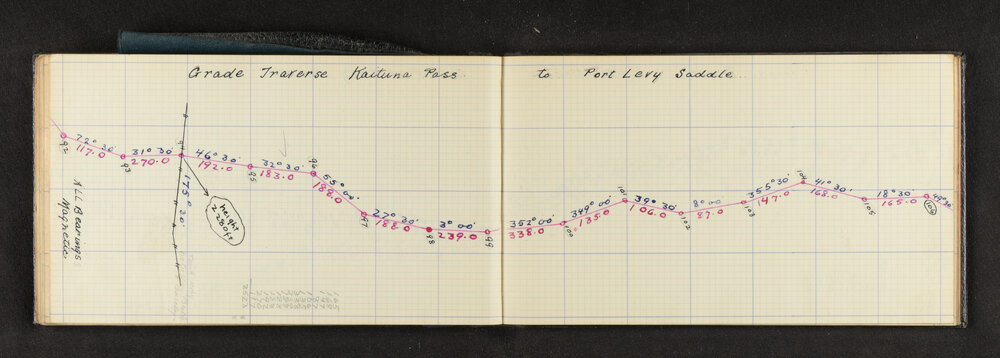 Grade Traverse Kaituna Pass. to Port Levy Saddle.
92
72° 30'
117.0
93
31° 30'
270.0
94
46° 30'
192.0
95
32° 30'
183.0
96
55° 00'
188.0
97
27° 30'
188.0
98
3° 00'
239.0
99
352° 00'
338.0
100
349° 00'
135.0
101
39° 30'
106.0
102
8° 00'
87.0
103
355° 30'
147.0
104
41° 30'
168.0
105
18° 30'
165.0
106
49° 30'
175° 30'
height
2280ft
ALL Bearings
Magnetic